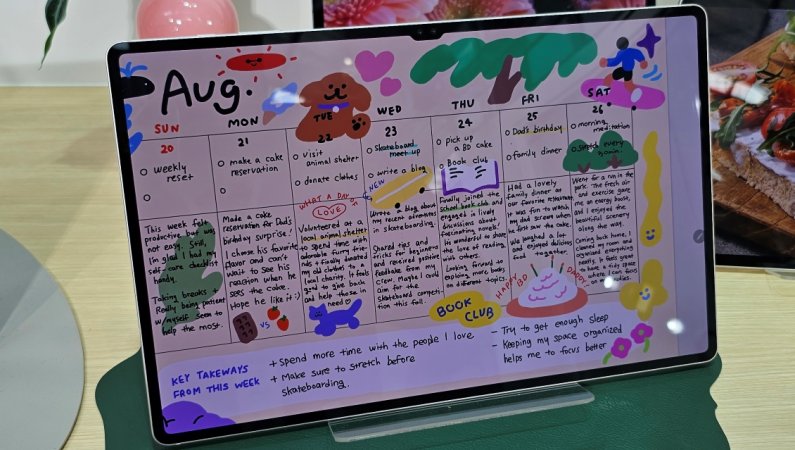 Aug.
SUN
MON
TUE
WED
THU
FRI
SAT
20
weekly
reset
21
make a cake
reservation
22
visit
animal shelter
donate clothes
23
skateboard
meet up
write a blog
24
pick up
a BD cake
Book club
25
Dad's birthday
family dinner
26
morning
meditation
stretch every
This week felt
productive but was
not easy. Still,
I'm glad I had my
self-care checklist
handy.
Taking breaks +
Really being patient
w/myself seem to
help the most.
Made a cake
reservation for Dad's
birthday surprise!
I chose his favorite
flavor and can't
wait to see his
reaction when he
sees the cake.
Hope he like it :)
VS
WHAT A DAY OF
LOVE
Volunteered at a
local animal shelter
to spend time with
adorable furry friends
+ finally donated
my old clothes to a
local charity. It feels
good to give back
and help those in
need
NEW
Wrote a blog about
my recent adventures
in skateboarding.
Shared tips and
tricks for beginners
and received positive
feedback from my
crew. Maybe I could
aim for the
skateboard competition
this fall.
Finally joined the
school book club and
engaged in lively
discussions about
fascinating novels.
It's wonderful to share
the love of reading
with others.
Looking forward to
exploring more books
on different topics.
BOOK
CLUB
Had a lovely
family dinner at
our favorite restaurant.
It was fun to watch
my dad scream when
he first saw the cake.
We laughed a lot
and enjoyed delicious
food together
HAPPY BD DADDY
Went for a run in the
park. The fresh air
and exercise gave
me an energy boost,
and I enjoyed the
beautiful scenery
along the way.
Coming back home, I
cleaned my room and
organized everything
neatly. It feels great
to have a tidy space
where I can focus
on
KEY TAKEWAYS
FROM THIS WEEK
+ Spend more time with the people I love
+ Make sure to stretch before
skateboarding.
- Try to get enough sleep
- Keeping my space organized
helps me to focus better